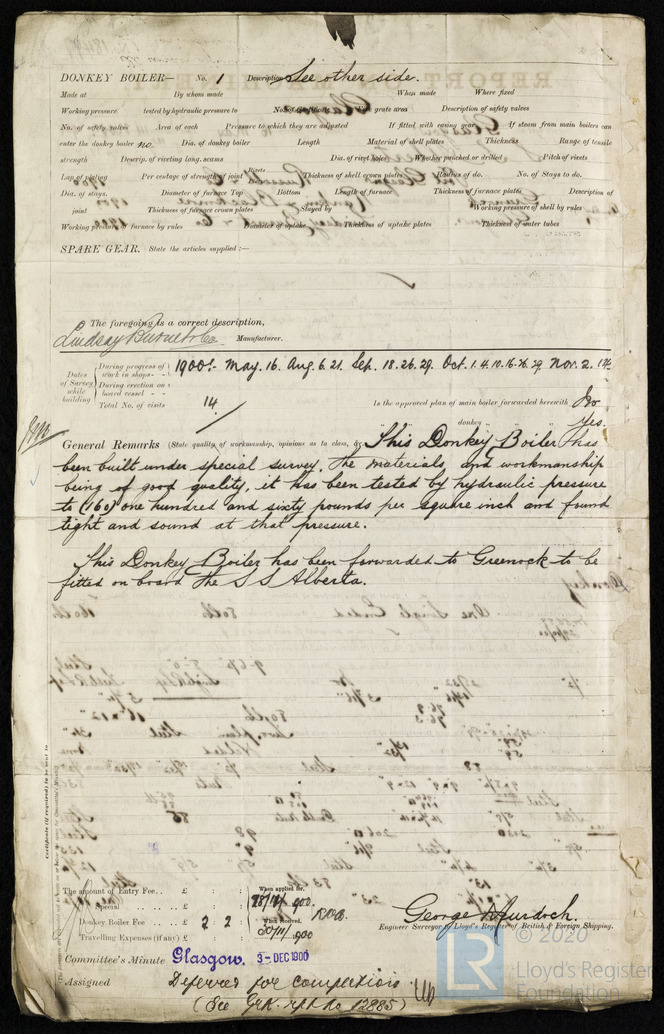 DONKEY BOILER— No. 1 Description See other side.
Made at By whom made When made Where fixed
Working pressure tested by hydraulic pressure to No. of Certificate Fire grate area Description of safety valves
No. of safety valves Area of each Pressure to which they are adjusted If fitted with easing gear If steam from main boilers can
enter the donkey boiler no. Dia. of donkey boiler Length Material of shell plates Thickness Range of tensile
strength Descrip. of riveting long. seams Dia. of rivet holes Whether punched or drilled Pitch of rivets
Lap of plating Per centage of strength of joint Rivets Thickness of shell crown plates Radius of do. No. of Stays to do.
Dia. of stays. Diameter of furnace Top Bottom Length of furnace Thickness of furnace plates Description of
joint Thickness of furnace crown plates Stayed by Working pressure of shell by rules
Working pressure of furnace by rules Diameter of uptake Thickness of uptake plates Thickness of water tubes
SPARE GEAR. State the articles supplied:—
The foregoing is a correct description,
Lindsay Burnet & Co Manufacturer.
Dates of Survey while building
During progress of work in shops - - 1900:- May. 16. Aug. 6. 21. Sep. 18. 26. 29. Oct. 1. 4. 10. 16. 26. 29. Nov. 2. 17.
During erection on board vessel - - -
Total No. of visits 14 Is the approved plan of main boiler forwarded herewith No
" " " donkey " " " Yes.
General Remarks (State quality of workmanship, opinions as to class, &c. This Donkey Boiler has
been built under special survey, the materials and workmanship
being of good quality, it has been tested by hydraulic pressure
to (160) one hundred and sixty pounds per square inch and found
tight and sound at that pressure.
This Donkey Boiler has been forwarded to Greenock to be
fitted on board the S S Alberta.
Certificate (if required) to be sent to
The amount of Entry Fee . . £ : : When applied for,
Special . . . . . £ : : 28/11/1900.
Donkey Boiler Fee . . . £ 2 : 2 : When received,
Travelling Expenses (if any) £ : : 30/11/1900
George Murdoch.
Engineer Surveyor to Lloyd's Register of British & Foreign Shipping.
Committee's Minute Glasgow. 3 - DEC 1900
Assigned Deferred for completion
(See Grk. rpt. No 12885)
© 2020
LR
Lloyd's Register
Foundation